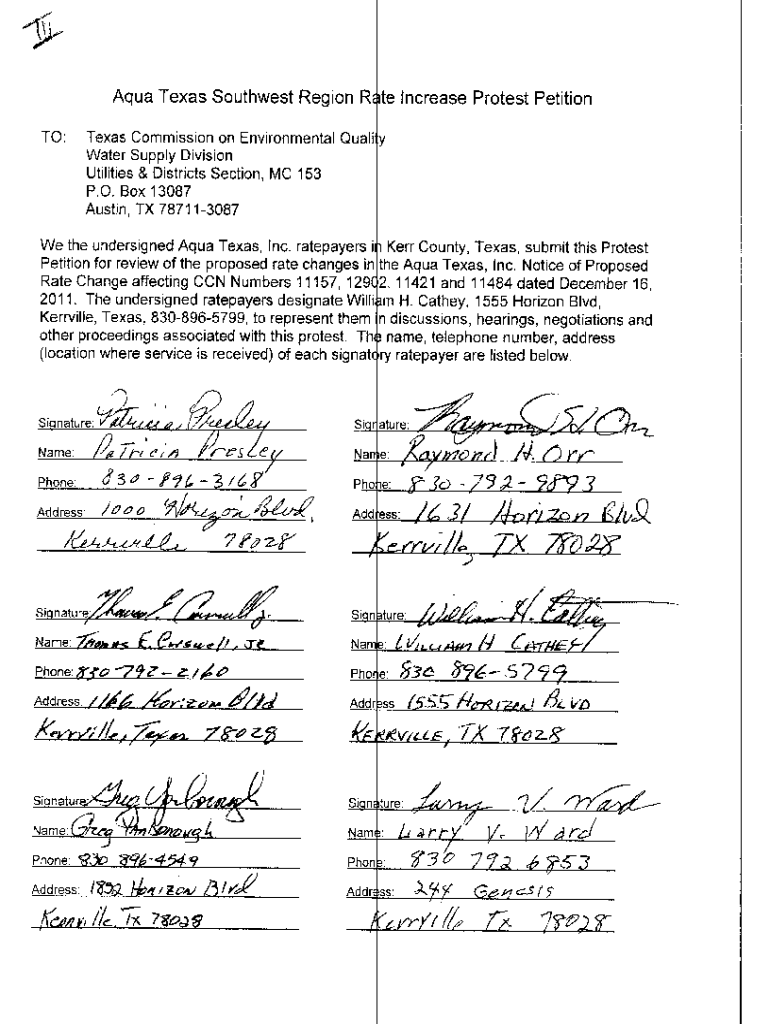 III
Aqua Texas Southwest Region Rate Increase Protest Petition
TO: Texas Commission on Environmental Quality
Water Supply Division
Utilities & Districts Section, MC 153
P.O. Box 13087
Austin, TX 78711-3087
We the undersigned Aqua Texas, Inc. ratepayers in Kerr County, Texas, submit this Protest
Petition for review of the proposed rate changes in the Aqua Texas, Inc. Notice of Proposed
Rate Change affecting CCN Numbers 11157, 12902, 11421 and 11484 dated December 16,
2011. The undersigned ratepayers designate William H. Cathey, 1555 Horizon Blvd,
Kerrville, Texas, 830-896-5799, to represent them in discussions, hearings, negotiations and
other proceedings associated with this protest. The name, telephone number, address
(location where service is received) of each signatory ratepayer are listed below.
Signature: Patricia Presley
Name: Patricia Presley
Phone: 830-896-3168
Address: 1000 Horizon Blvd,
Kerrville 78028
Signature: Raymond H Orr
Name: Raymond H. Orr
Phone: 830-792-9893
Address: 1631 Horizon Blvd
Kerrville, TX 78028
Signature: Thomas E. Jr.
Name: Thomas E. Jr
Phone: 830-792-2160
Address. 1166 Horizon Blvd
Kerrville, Texas 78028
Signature: William H. Cathey
Name: WILLIAM H CATHEY
Phone: 830 896-5799
Address 1555 HORIZON BLVD
KERRVILLE, TX 78028
Signature: Greg Yarborough
Name: Greg Yarborough
Phone: 830 896-4549
Address: 1892 Horizon Blvd
Kerrville, Tx 78028
Signature: Larry V. Ward
Name: Larry V. Ward
Phone: 830 792 6853
Address: 244 Genesis
Kerryille Tx 78028